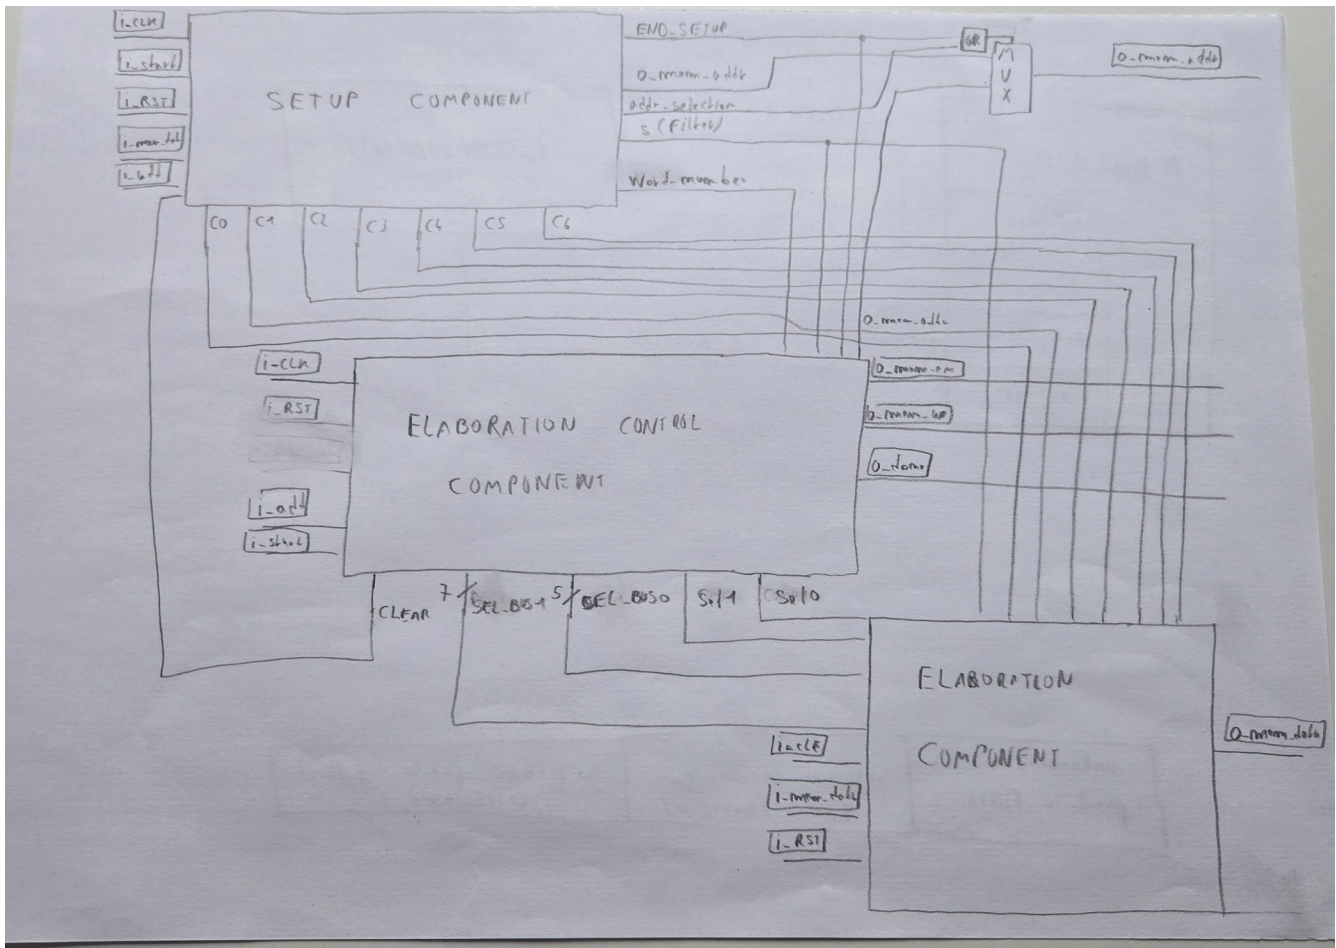 i_CLK
i_start
i_RST
i_add
SETUP COMPONENT
END_SETUP
o_mem_addr
addr_selection
s (Filter)
Word_number
OR
MUX
o_mem_addr
C0 C1 C2 C3 C4 C5 C6
o_mem_addr
i-CLK
i_RST
i_add
i_start
ELABORATION CONTROL
COMPONENT
o_mem_en
o_mem_we
o_done
CLEAR
7
SEL_BUS1
5
SEL_BUS0
Sel1
Sel0
ELABORATION
COMPONENT
i-clk
i-mem_data
i_RST
o_mem_data